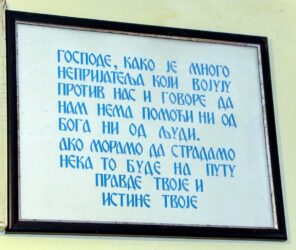 ГОСПОДЕ, КАКО ЈЕ МНОГО
НЕПРИЈАТЕЉА КОЈИ ВОЈУЈУ
ПРОТИВ НАС И ГОВОРЕ ДА
НАМ НЕМА ПОМОЋИ НИ ОД
БОГА НИ ОД ЉУДИ.
АКО МОРАМО ДА СТРАДАМО
НЕКА ТО БУДЕ НА ПУТУ
ПРАВДЕ ТВОЈЕ И
ИСТИНЕ ТВОЈЕ